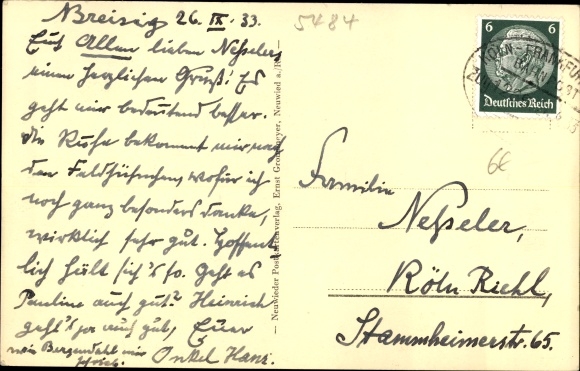 Breisig 26. IX. 33.
Euch Allen lieben Neßelers
einen herzlichen Gruß! Es
geht mir bedeutend besser.
die Ruhe bekommt mir nach
den Feldhühnchen, wofür ich
noch ganz besonders danke,
wirklich sehr gut. Hoffent
lich hält sich's so. Geht es
Pauline auch gut? Heinrich
geht's ja auch gut, Euer
wie Bergendahl mir
schrieb. Onkel Hans.
— Neuwieder Postkartenverlag, Ernst Neuwied a./Rh. —
5484
6 6
Deutsches Reich
KÖLN-FRANKFUR
BAHN
6€
Familie
Neßeler,
Köln Riehl,
Stammheimerstr. 65.